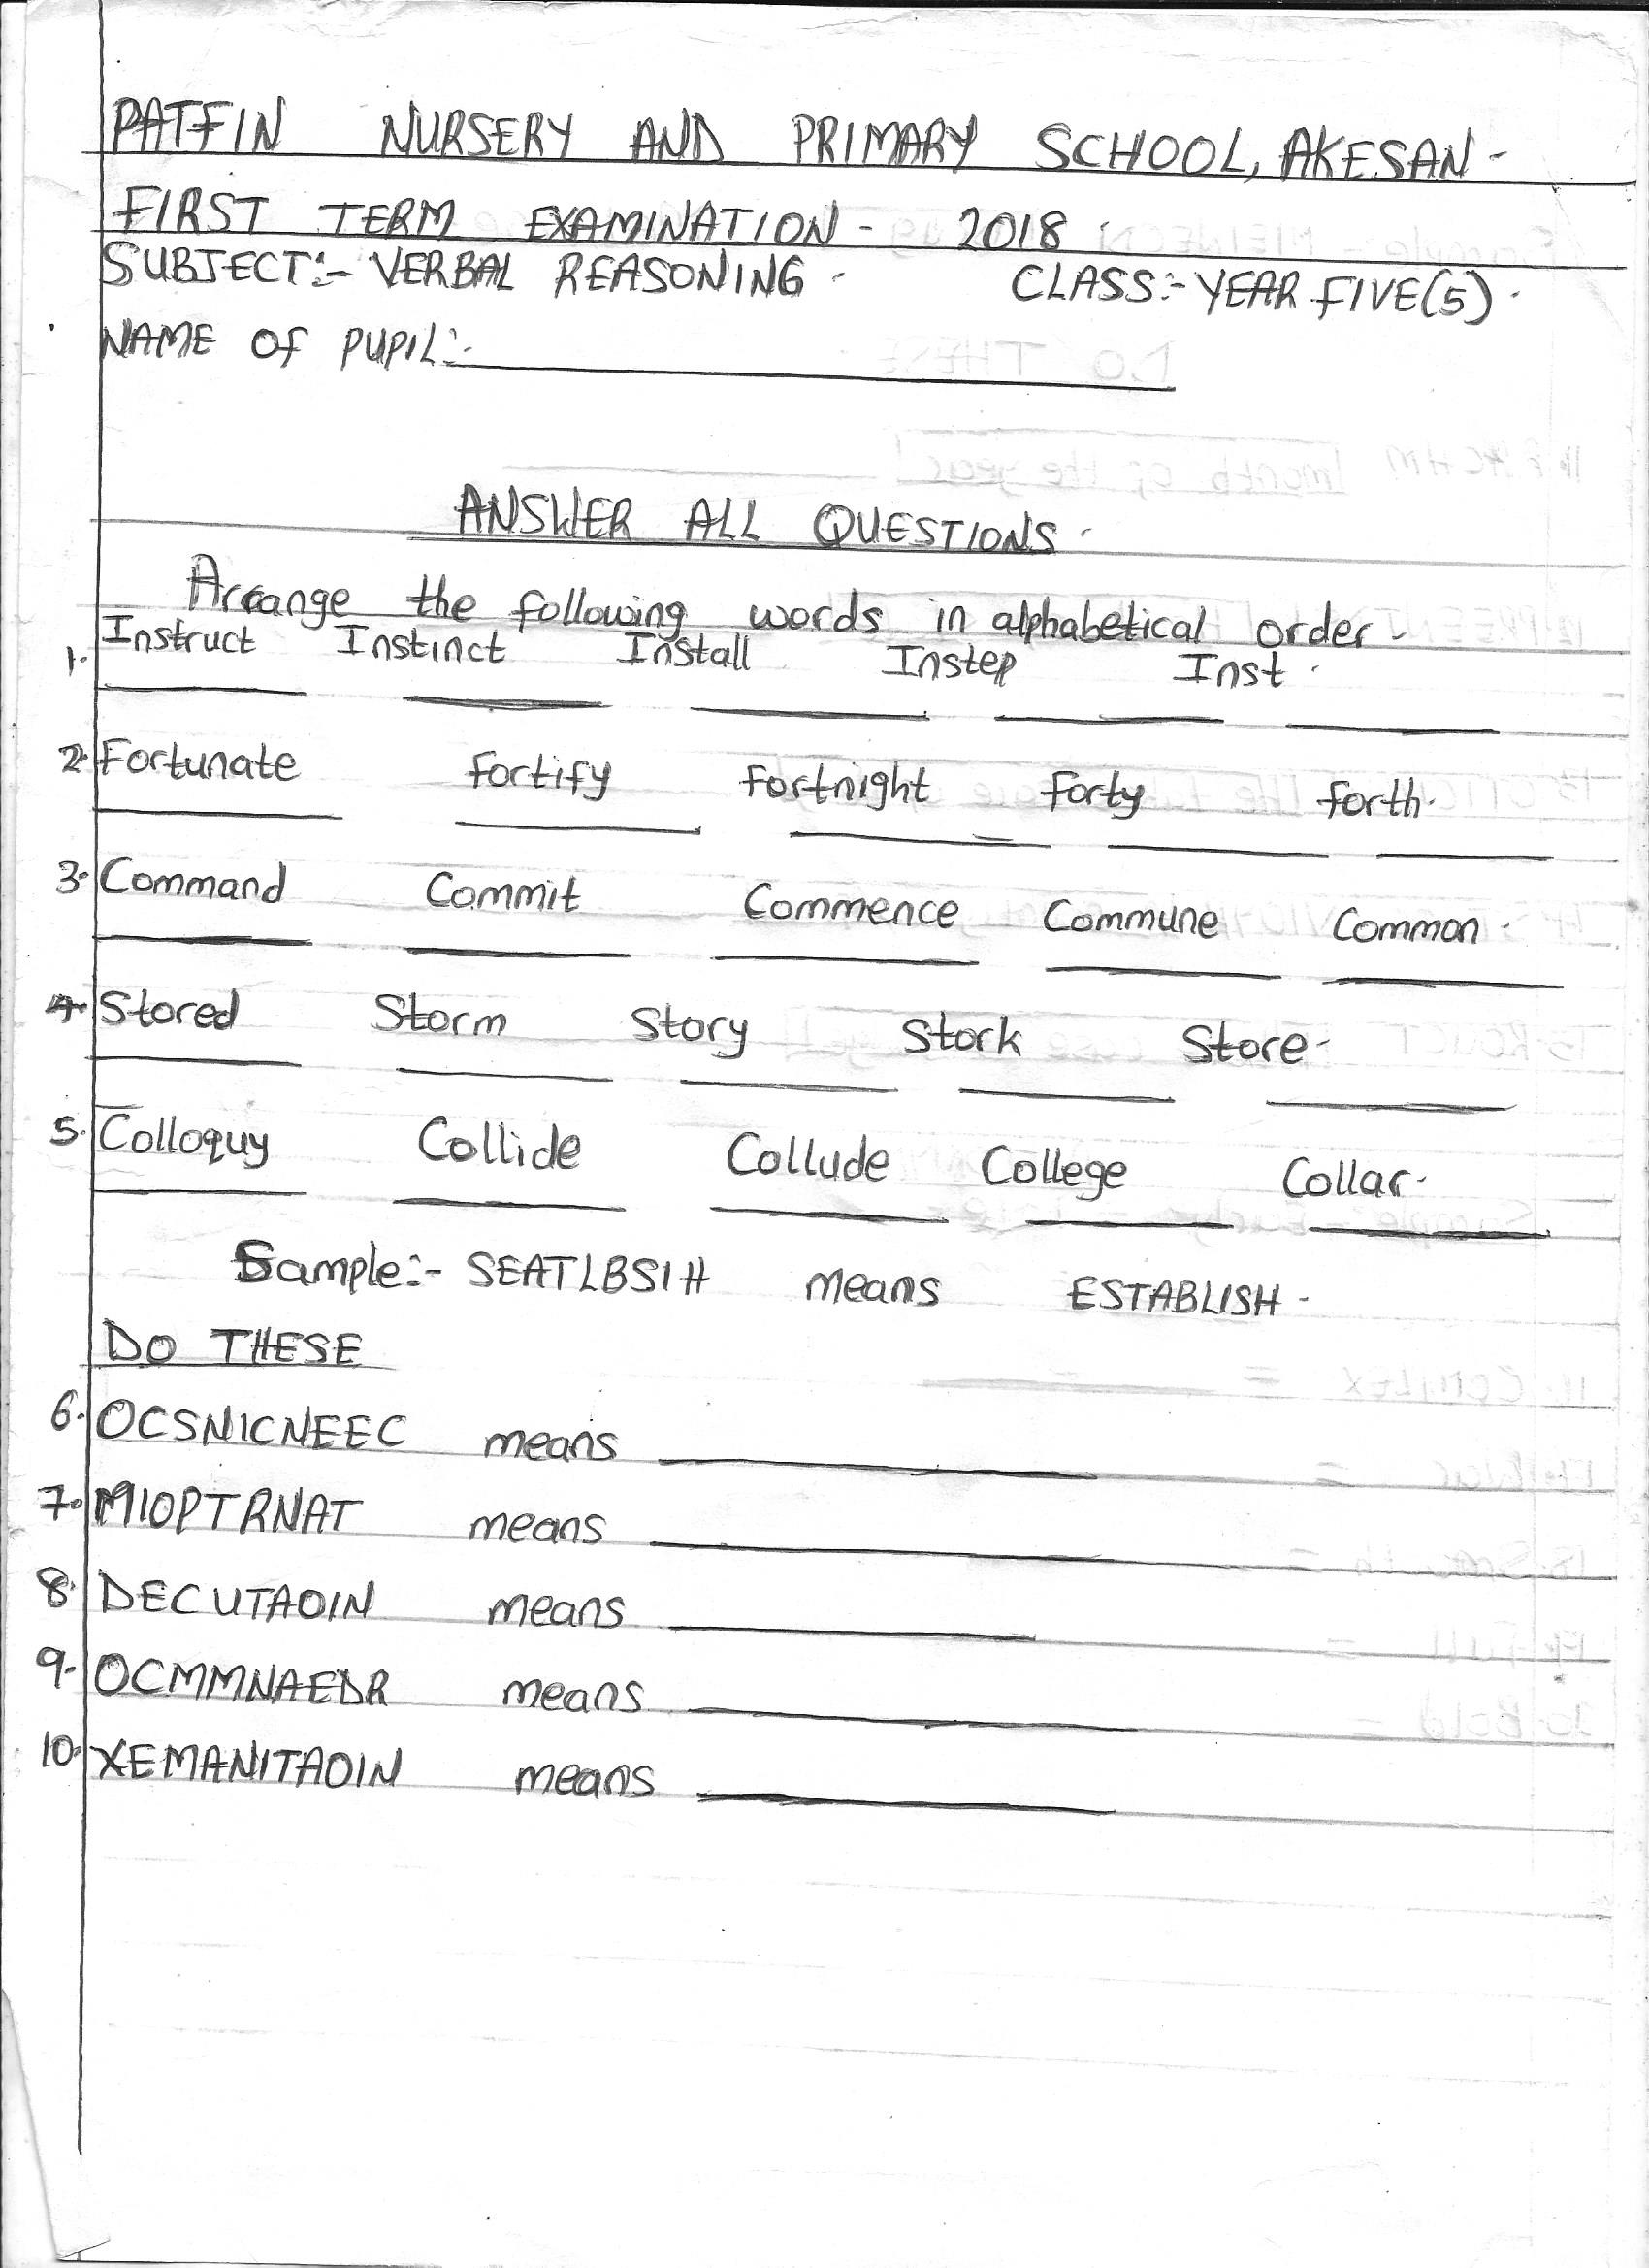 PATFIN NURSERY AND PRIMARY SCHOOL, AKESAN -
FIRST TERM EXAMINATION - 2018
SUBJECT:- VERBAL REASONING - CLASS:- YEAR FIVE(5) -
NAME OF PUPIL:-
ANSWER ALL QUESTIONS -
Arrange the following words in alphabetical order -
1. Instruct Instinct Install Instep Inst -
2. Fortunate fortify fortnight forty forth.
3. Command Commit Commence Commune Common -
4. Stored Storm Story Stork Store -
5. Colloquy Collide Collude College Collar -
Sample:- SEATLBSIH means ESTABLISH -
DO THESE
6. OCSNICNEEC means
7. MIOPTRNAT means
8. DECUTAOIN means
9. OCMMNAEDR means
10. XEMANITAOIN means